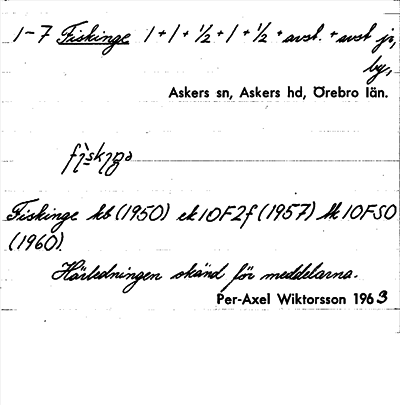 1-7 Fiskinge 1+1+½+1+½ + avst. + avst jr,
by,
Askers sn, Askers hd, Örebro län.
Fiskinge kb (1950) ek 10F2f (1957) tk 10FSO
(1960).
Härledningen okänd för meddelarna.
Per-Axel Wiktorsson 1963